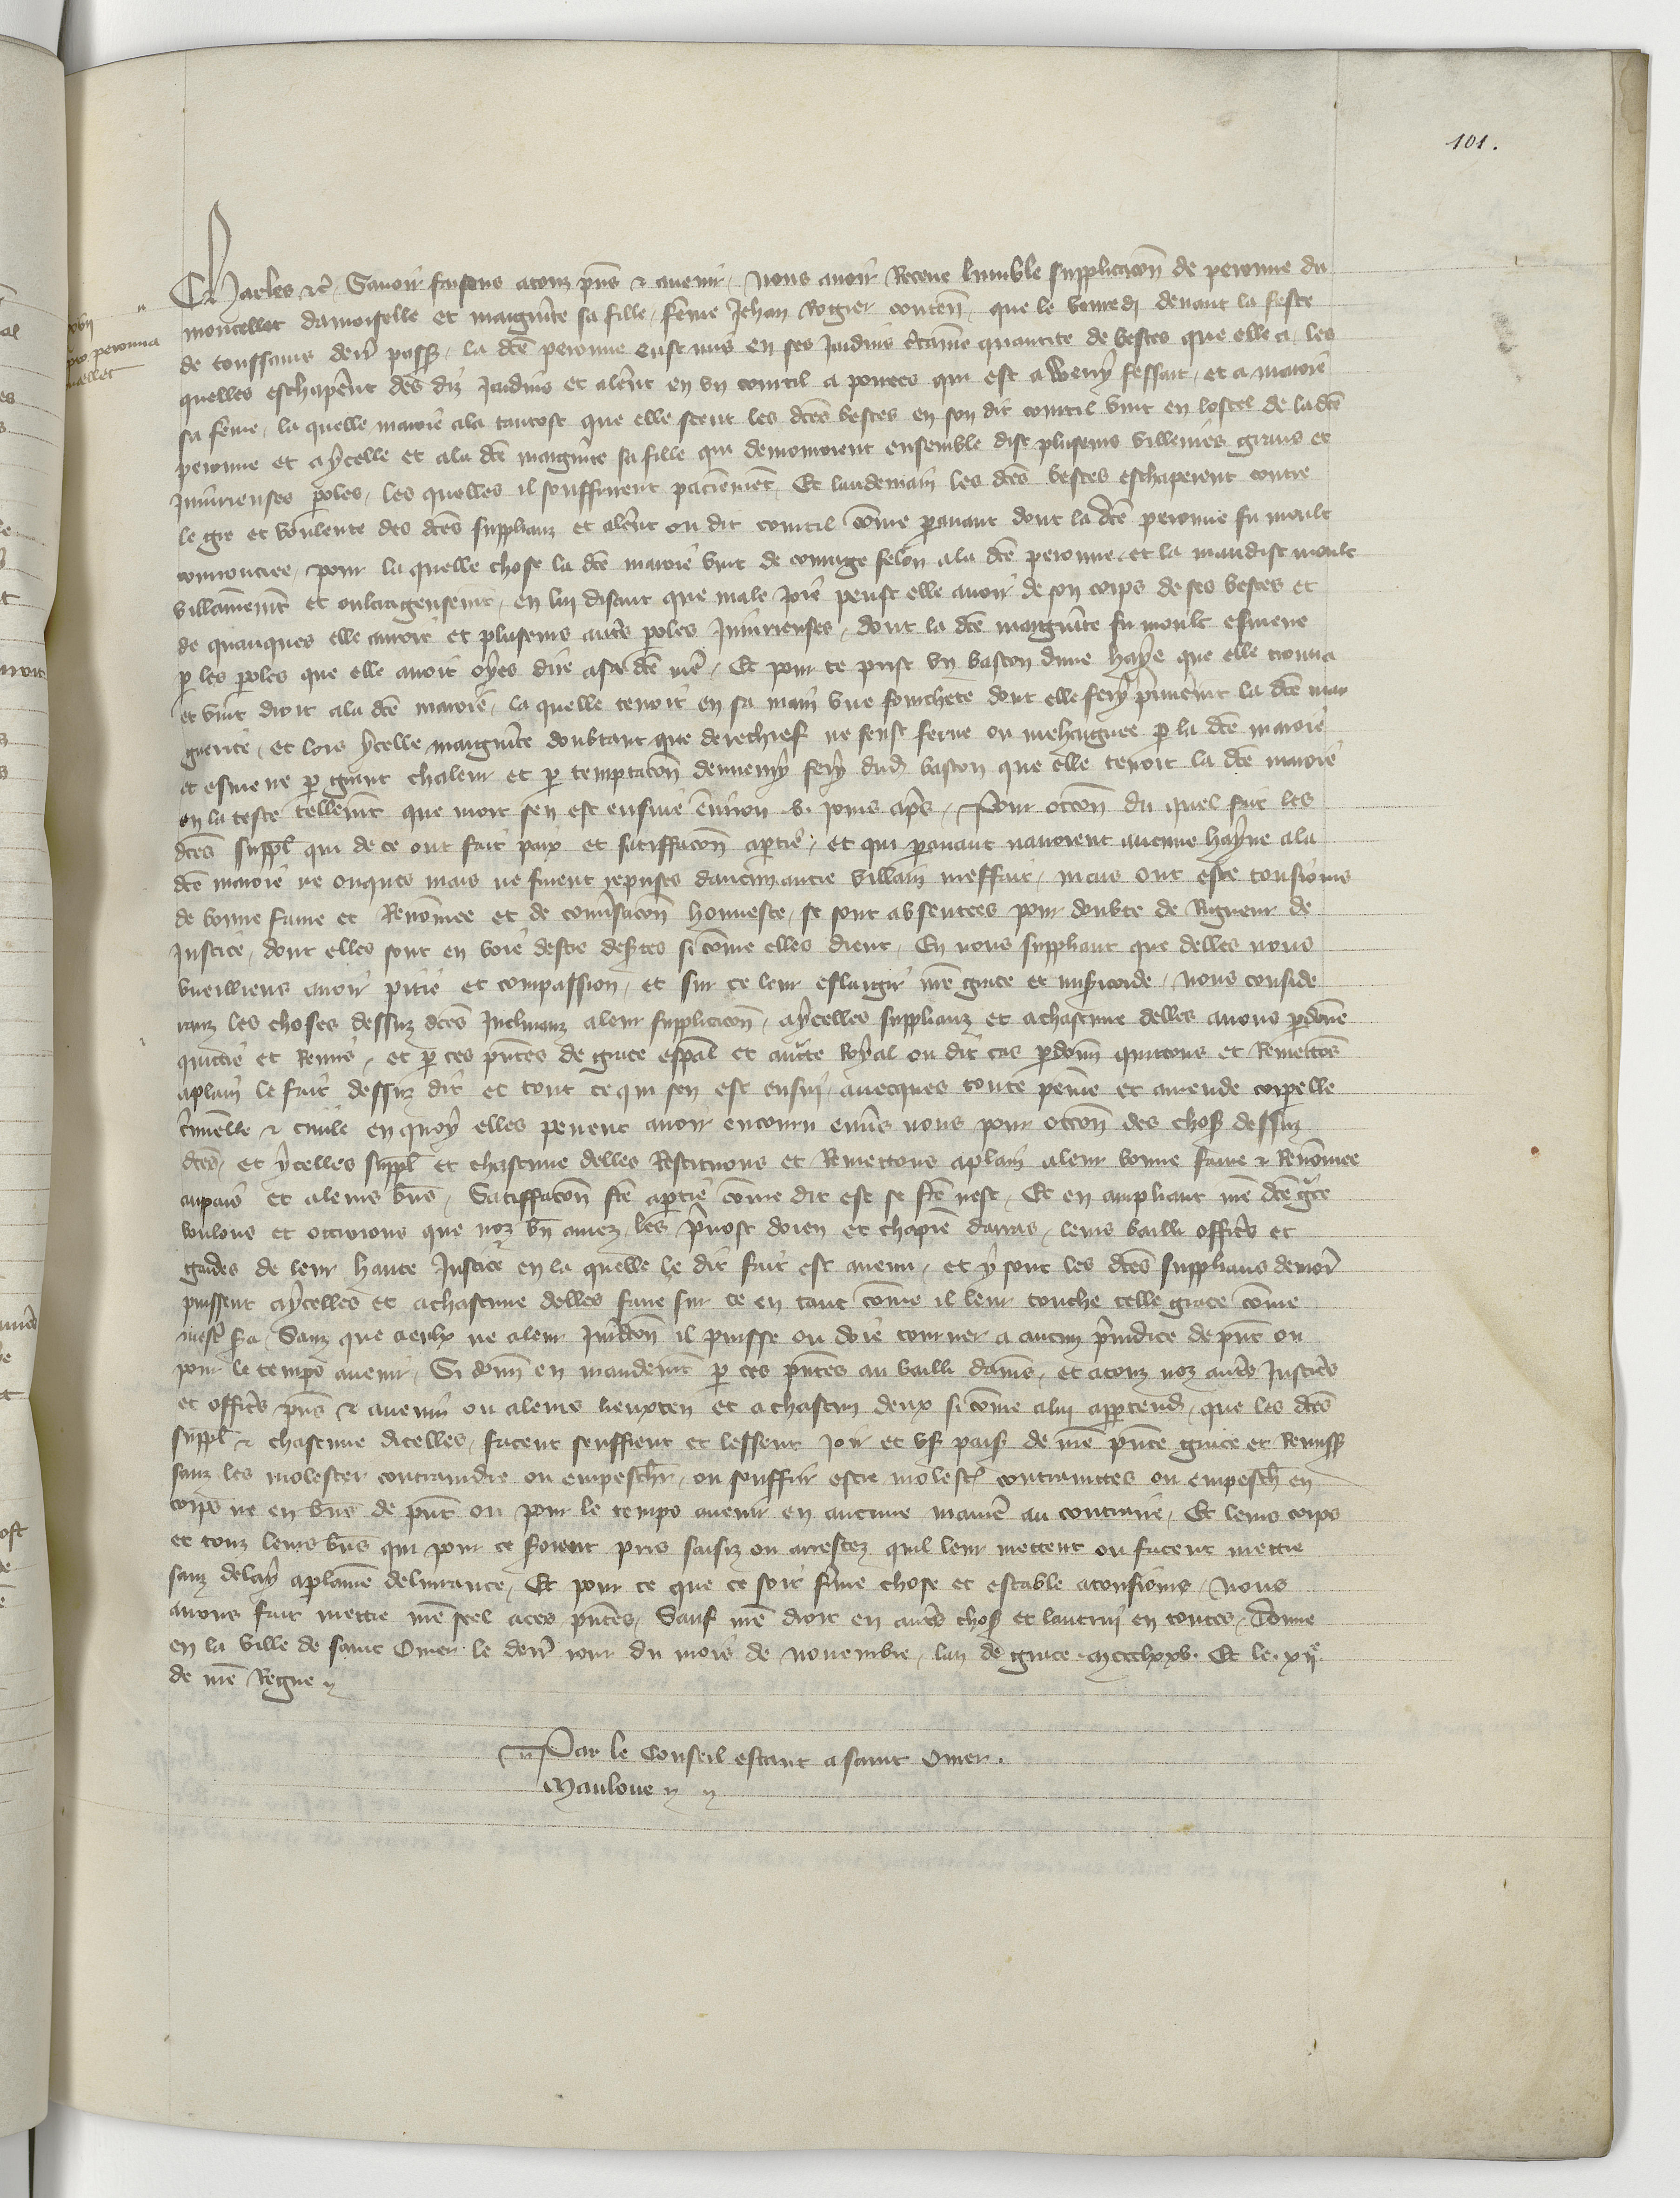 101.
Charles etc̃. Sauoir faisons a touz pñs & auenir. Nous auoir Receue lumble supplicacõn de peronne du
moncellet damoiselle et margũite sa fille, fẽme Jehan Rogier conteñ. que le venredi deuant la feste
de toussains deñr passe, la dcẽ peronne eust mis en ses Jardins c̃taine quantite de bestes que elle a, les
quelles eschapẽrent des diz Jardins et alẽrent en vn courtil a porees qui est a Wery fessart, et a maroie
sa fẽme, la quelle maroie ala tantost que elle sceut les dcẽs bestes en son dit courtil vint en lostel de ladcẽ
peronne et a ycelle et ala dcẽ margũite sa fille qui demouroient ensemble dist pluseurs villenies grans et
Iniurieuses p̃oles, les quelles il souffrirent paciẽment, Et landemain les dcẽs bestes eschaperent contre
le gre et voulente des dcẽs supplianz et alẽrent ou dit courtil cõme p̃auant dont la dcẽ peronne fu moult
courrouciee, pour la quelle chose la dcẽ maroie vint de courage felon ala dcẽ peronne et la maudist moult
villainemẽt et oultrageusemt, en lui disant que male Joie peust elle auoir de son corps de ses bestes et
de quanques elle auoit et pluseurs autẽs p̃oles Iniurieuses, dont la dcẽ margũite fu moult esmeue
p̃ les p̃oles que elle auoit oyes dire a sa dcẽ mẽ, Et pour ce prist vn baston dune haye que elle trouua
et vint droit ala dcẽ maroie, la quelle tenoit en sa main vne fourchete dont elle fery p̃miẽmt la dcẽ mar
guerite, et lors ycelle margũite doubtant que derechief ne feust ferue ou mehaignee p̃ la dcẽ maroie
et esmeue p̃ grant chaleur et p̃ temptacõn dennemy fery dud. baston que elle tenoit la dcẽ maroie
en la teste tellemt que mort sen est ensuie ẽnuiron .v. iours apẽs, Pour occõn du quel fait les
dcẽs suppl̃ qui de ce ont fait paix et satiffacõn a ptie, et qui p̃auant nauoient aucune hayne ala
dcẽ maroie ne onques mais ne furent reprises daucun autre villain meffait, mais ont este tousiours
de bonne fame et Renõmee et de conũsacõn honneste, se sont absentees pour doubte de Rigueur de
Justice, dont elles sont en voie destre des̃tes si cõme elles dient, En nous suppliant que delles nous
vueilliens auoir pitie et compassion, et sur ce leur eslargir nr̃e grace et mis̃icorde, Nous conside
ranz les choses dessuz dcẽs Inclinanz a leur supplicacõn, aycelles supplianz et a chascune delles auons p̃donne
quictie et Remis, et p̃ ces p̃ntes de grace esp̃al et autc̃te Royal ou dit cas p̃donn̄ quictons et Remettons
aplain le fait dessuz dit et tout ce qui sen est ensui auecques toute peine et amende corporelle
c̃minelle & ciuile en quoy elles peuent auoir encouru enũs nous pour occõn des chos̃ dessuz
dcẽs, et ycelles suppl̃ et chascune delles Restituons et Remettons aplain aleur bonne fame & Renõmee
au pais et aleurs bñs, Satiffacõn fcẽ a ptie cõme dit est se fcẽ nest, Et en ampliant nr̃e dcẽ gr̃ce
voulons et octroions que noz bñ amez, les p̃uost doien et chapitre darras, leurs bailli offic̃s et
gardes de leur haute Justice en la quelle le dit fait est auenu, et y sont les dcẽs supplians demor̃
puissent aycelles et a chascune delles faire sur ce en tant cõme il leur touche telle grace cõme
mest̃ s̃a, Sanz que a eulx ne a leur Jur̃dicõn il puisse ou doie tourner a aucun p̃iudice de p̃nt ou
pour le temps auenir, Si donn̄ en mandemt p̃ ces p̃ntes au bailli damiens, et a touz noz autẽs Justic̃s
et offic̃s pñs & auenir ou aleurs lieuxteñ et a chascun deulx si cõme alui app̃tend̃, que les dcẽs
suppl̃ & chascune dicelles facent seuffrent et lessent Joir et vs̃ paisib de nr̃e p̃nte grace et Remiss̃
sanz les molester contraindre ou empesch̃r, ou souffrir estre molest̃ contraintes ou empesch̃ en
corps ne en bñs de p̃nt ou pour le temps auenir en aucune maniẽ au contraire, Et leurs corps
et touz leurs bñs qui pour ce s̃oient pris saisiz ou arrestez quil leur mettent ou facent mettre
sanz delay a plaine deliurance, Et pour ce que ce soit fẽrme chose et estable a tousiours, Nous
auons fait mettre nr̃e seel a ces p̃ntes, Sauf nr̃e droit en autẽs chos̃ et lautrui en toutes, Donne
en la ville de saint Omer le deñr iour du mois de nouembre, lan de grace .mccclxxv. Et le .xije.
de nr̃e Regne
Par le Conseil estant a saint Omer.
Mauloue